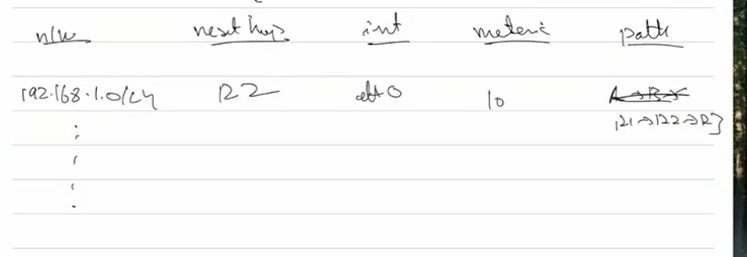 n/w next hop int metric path
192.168.1.0/24 R2 eth0 10 A→B→
R1→R2→R3